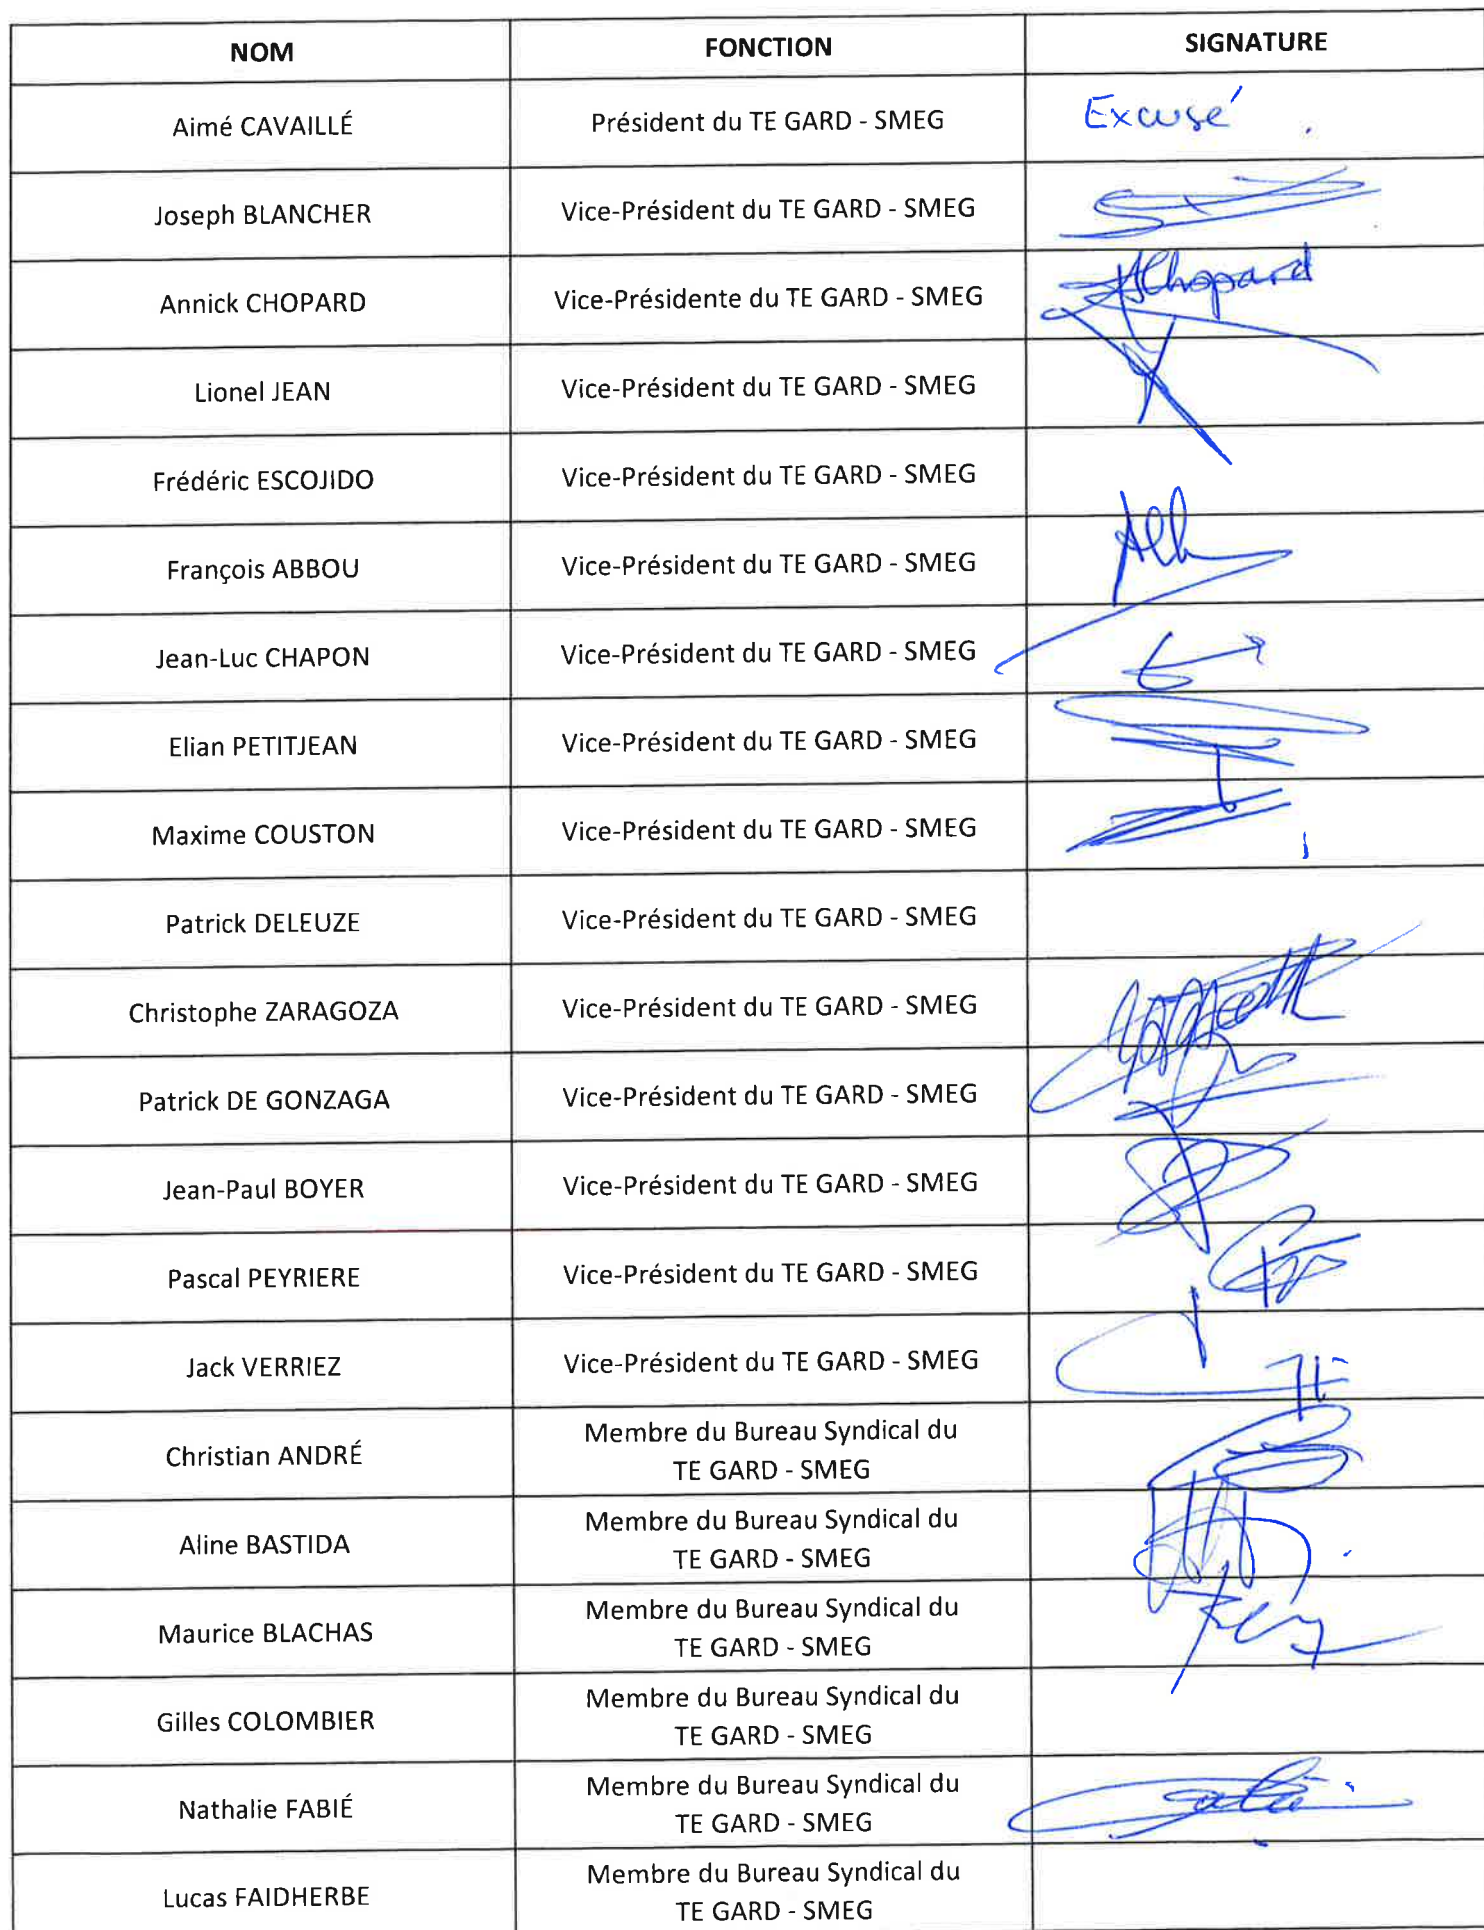 NOM FONCTION SIGNATURE
Aimé CAVAILLÉ Président du TE GARD - SMEG Excusé
Joseph BLANCHER Vice-Président du TE GARD - SMEG
Annick CHOPARD Vice-Présidente du TE GARD - SMEG AChopard
Lionel JEAN Vice-Président du TE GARD - SMEG
Frédéric ESCOJIDO Vice-Président du TE GARD - SMEG
François ABBOU Vice-Président du TE GARD - SMEG
Jean-Luc CHAPON Vice-Président du TE GARD - SMEG
Elian PETITJEAN Vice-Président du TE GARD - SMEG
Maxime COUSTON Vice-Président du TE GARD - SMEG
Patrick DELEUZE Vice-Président du TE GARD - SMEG
Christophe ZARAGOZA Vice-Président du TE GARD - SMEG
Patrick DE GONZAGA Vice-Président du TE GARD - SMEG
Jean-Paul BOYER Vice-Président du TE GARD - SMEG
Pascal PEYRIERE Vice-Président du TE GARD - SMEG
Jack VERRIEZ Vice-Président du TE GARD - SMEG
Christian ANDRÉ Membre du Bureau Syndical du
TE GARD - SMEG
Aline BASTIDA Membre du Bureau Syndical du
TE GARD - SMEG
Maurice BLACHAS Membre du Bureau Syndical du
TE GARD - SMEG
Gilles COLOMBIER Membre du Bureau Syndical du
TE GARD - SMEG
Nathalie FABIÉ Membre du Bureau Syndical du
TE GARD - SMEG
Lucas FAIDHERBE Membre du Bureau Syndical du
TE GARD - SMEG